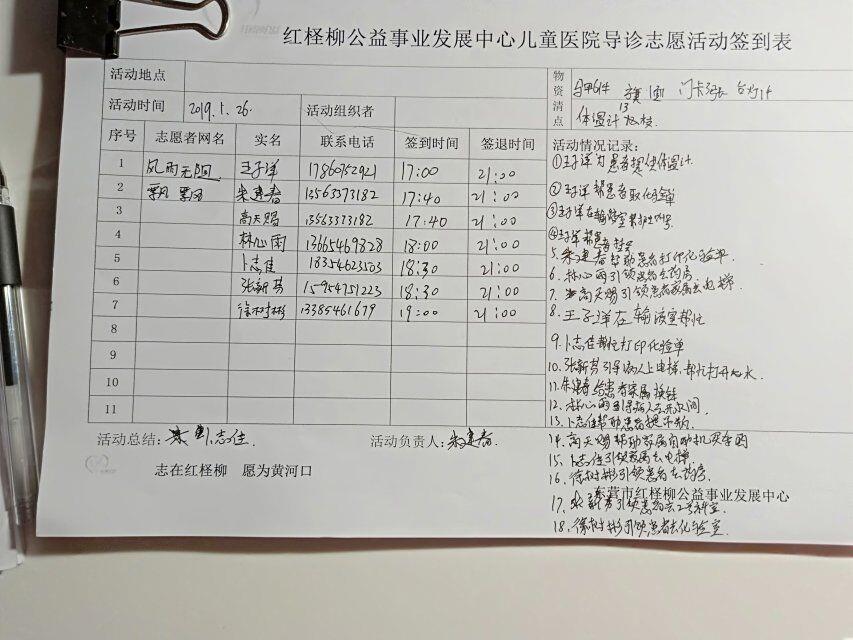 红柽柳公益事业发展中心儿童医院导诊志愿活动签到表
活动地点
物资清点
马甲6件 旗 1面 门卡3张 台灯1个
活动时间 2019.1.26. 活动组织者
体温计 13
序号 志愿者网名 实名 联系电话 签到时间 签退时间 活动情况记录:
1 风雨无阻 王子洋 17860752921 17:00 21:00
2 飘 朱建春 13563373182 17:40 21:00
3 高天赐 13563373182 17:40 21:00
4 林心雨 13665469828 18:00 21:00
5 卜志佳 18354623503 18:30 21:00
6 张新芳 15954751223 18:30 21:00
7 徐树彬 13385461679 19:00 21:00
8
9
10
11
①王子洋为患者提供体温计
②王子洋帮患者取化验单
③王子洋在输液室
④王子洋帮患者
5、朱建春帮助患者打印化验单
6、林心雨引领患者去药房
7、高天赐引领患者家属去电梯
8、王子洋在输液室帮忙
9、卜志佳帮忙打印化验单
10、张新芳引导病人上电梯,帮忙打开水
11、朱建春给患者家属换钱
12、林心雨引导病人去洗手间
13、卜志佳帮助患者
14、高天赐帮助家属自助机买
15、卜志佳引领家属去电梯
16、徐树彬引领患者去药房
17、张新芳引领患者去2号科室
18、徐树彬引领患者去化验室
活动总结: 卜志佳. 活动负责人: 朱建春
志在红柽柳 愿为黄河口
东营市红柽柳公益事业发展中心